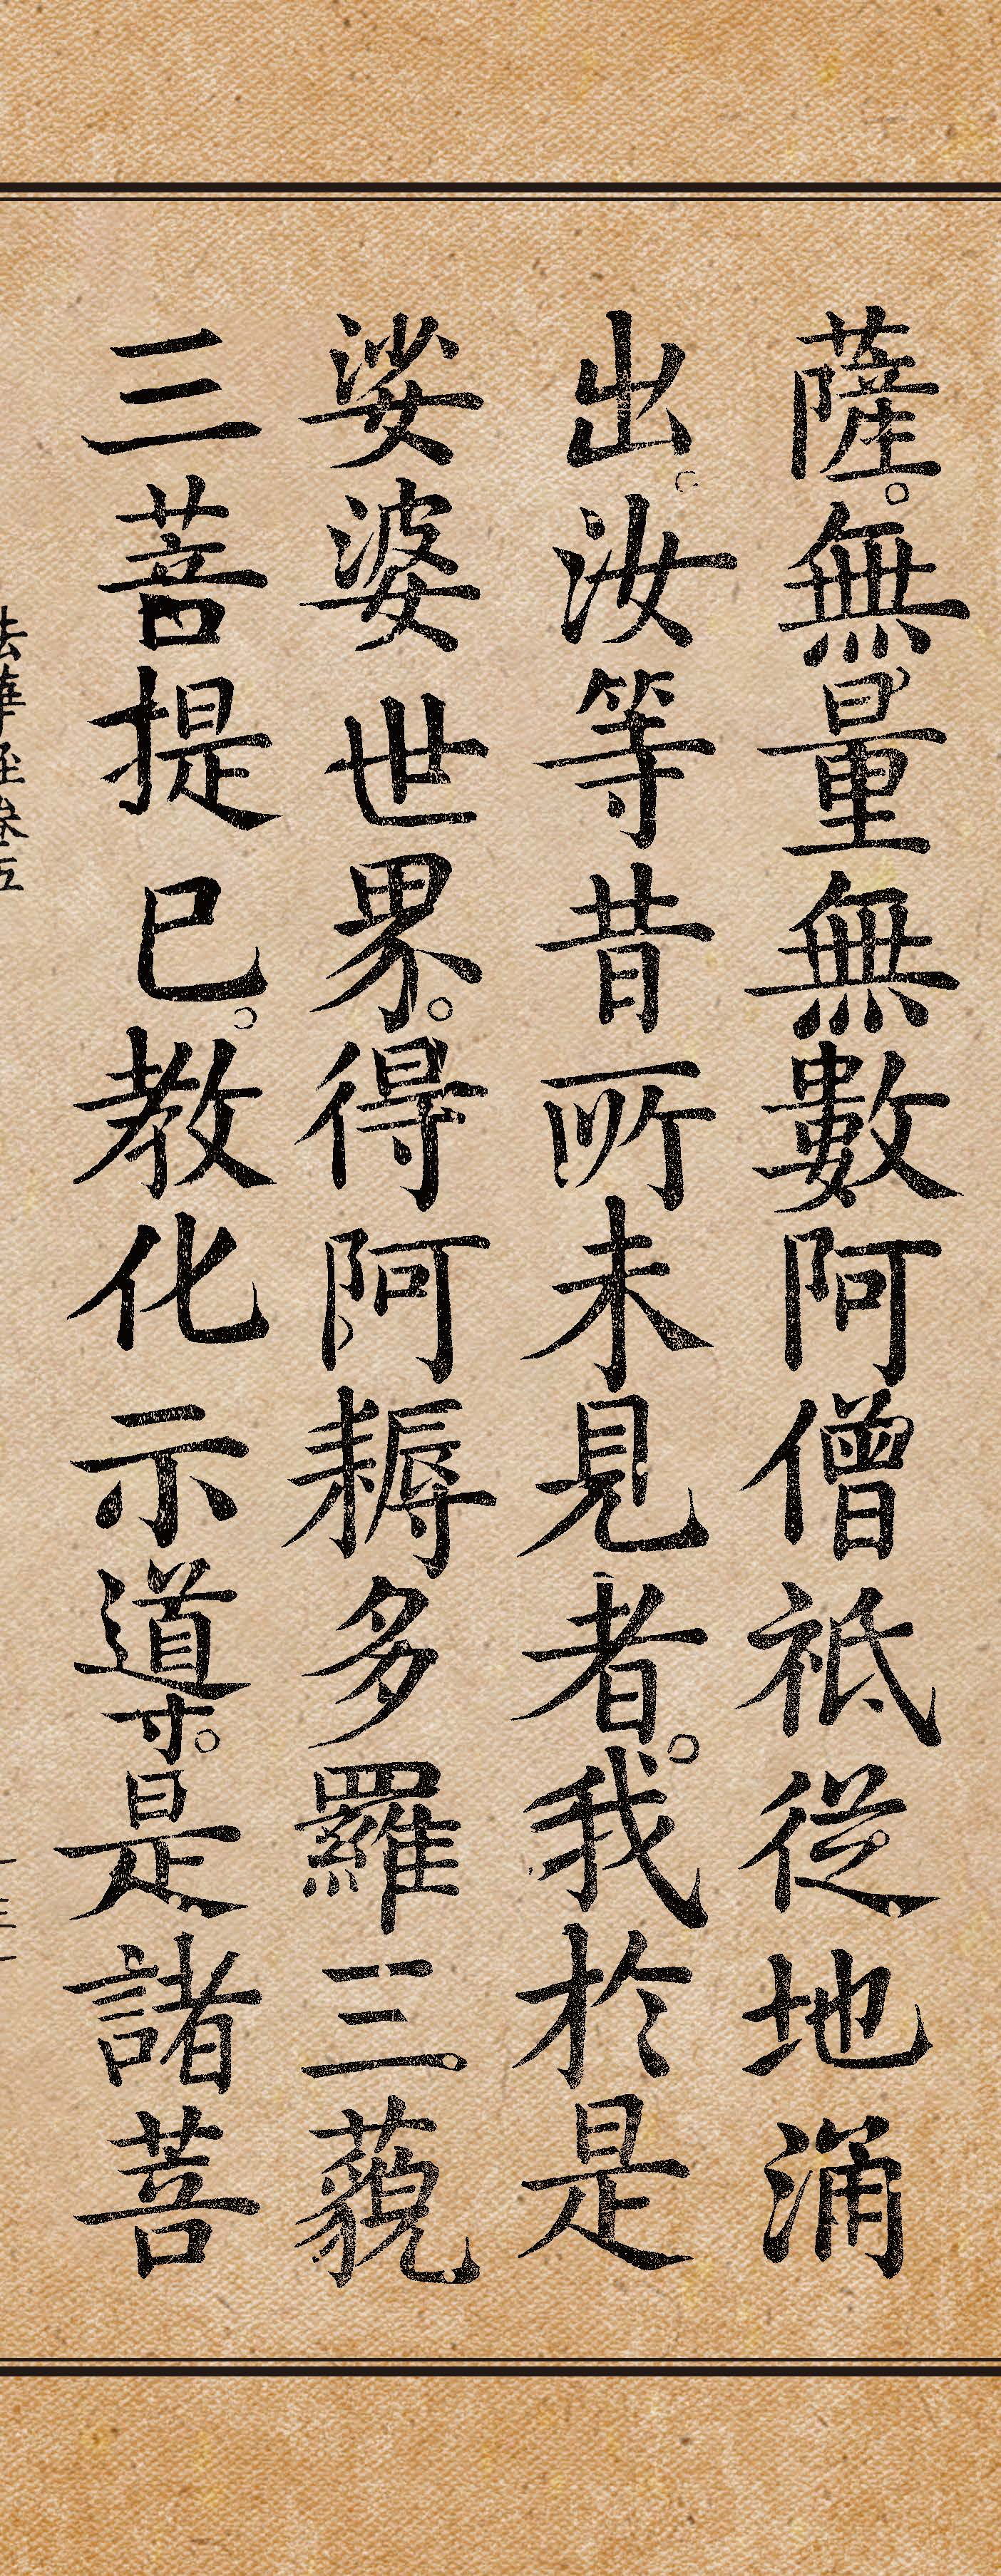 薩。無量無數阿僧祇從地涌
出。汝等昔所未見者。我於是
娑婆世界。得阿耨多羅三藐
三菩提已。教化示導。是諸菩
法華經卷五